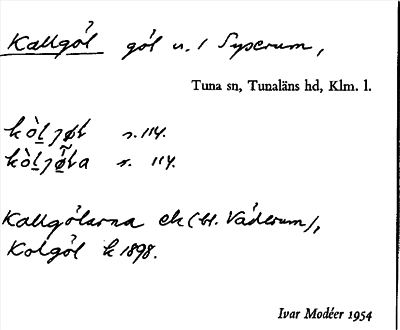 Kallgöl göl n. / Syserum,
Tuna sn, Tunaläns hd, Klm. l.
s. 114.
s. 114.
Kallgölarna ek (bl. Väderum),
Kolgöl k 1898.
Ivar Modéer 1954